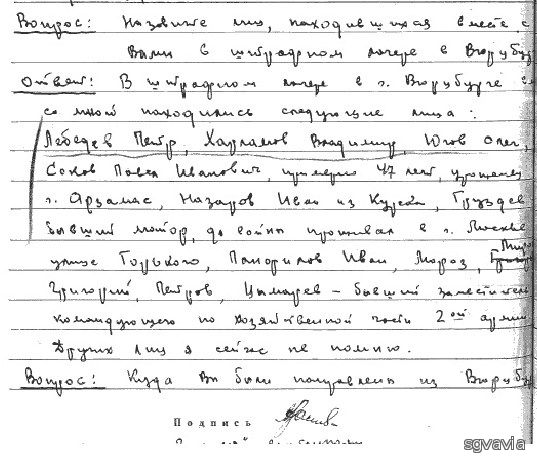 Вопрос: Назовите лиц, находившихся вместе с
Вами в штрафном лагере в Вюрцбур
Ответ: В штрафном лагере в г. Вюрцбурге в
со мной находились следующие лица:
Лебедев Петр, Харламов Владимир, Югов Олег,
Секов Павел Иванович, примерно 47 лет, уроженец
г. Арзамас, Назаров Иван из Курска, Груздев
бывший майор, до войны проживал в г. Москве
улице Горького, Панфилов Иван, Мороз,
Григорий, Петров, Цымарев - бывший заместитель
командующего по хозяйственной части 2ой армии
Других лиц я сейчас не помню.
Вопрос: Куда Вы были направлены из Вюрцбур
Подпись
sgvavia